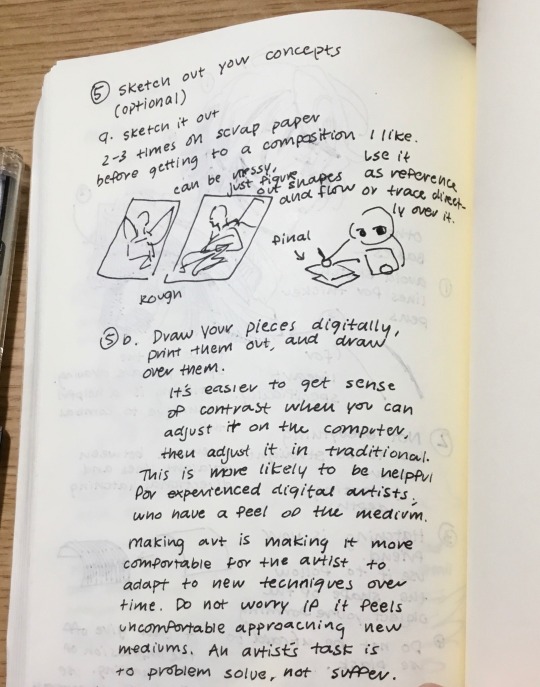 ⑤ sketch out your concepts
(optional)
a. sketch it out
2-3 times on scrap paper
before getting to a composition I like.
can be messy,
just figure
out shapes
and flow
use it
as reference
or trace direct-
ly over it.
final
Rough
⑤ b. Draw your pieces digitally,
print them out, and draw
over them.
It's easier to get sense
of contrast when you can
adjust it on the computer,
then adjust it in traditional.
This is more likely to be helpful
for experienced digital artists,
who have a feel of the medium.
making art is making it more
comfortable for the artist to
adapt to new techniques over
time. Do not worry if it feels
uncomfortable approaching new
mediums. An artist's task is
to problem solve, not suffer.